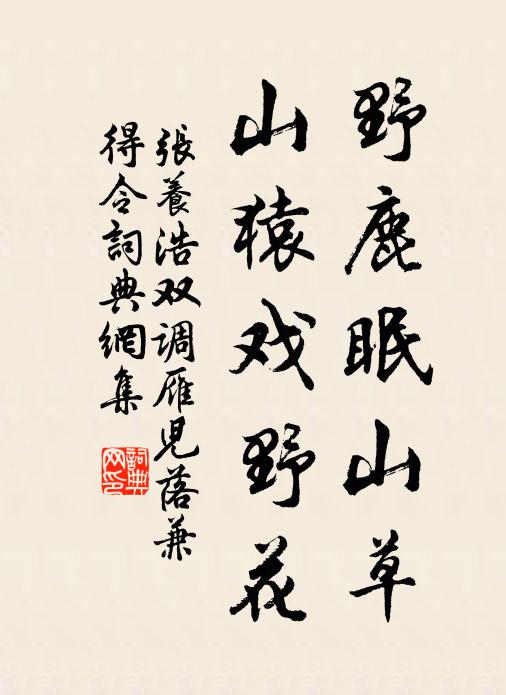 野鹿眠山草
山猿戏野花
張養浩双调雁児落兼
得令詞典網集
詞典
网印